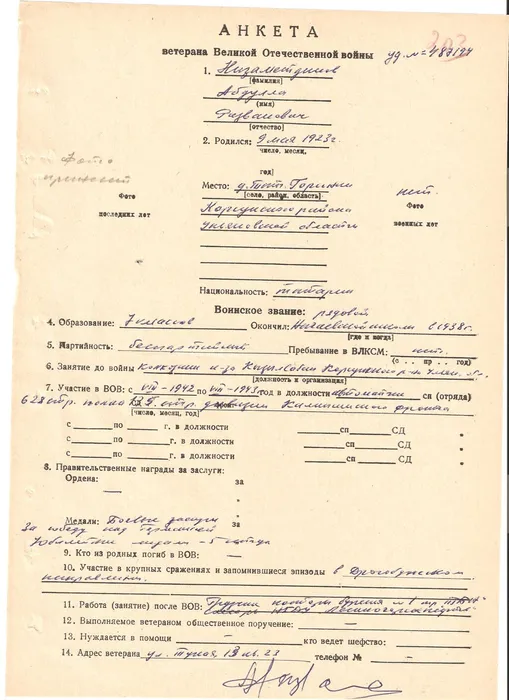 АНКЕТА
ветерана Великой Отечественной войны уд. №=487124
203
1. Низаметдинов
[фамилия]
Абдулла
(имя)
Разванович
[отчество]
2. Родился: 9 мая 1923г.
число, месяц,
год]
Фото
Место: д. Тат. Горенки
[село, район, область]
нет.
Фото
последних лет
Карсунского района
Фото
военных лет
Ульяновской области
Национальность: татарин
Воинское звание: рядовой
4. Образование: 7 классов Окончил: школы с 1938г.
[где и когда]
5. Партийность: беспартийный Пребывание в ВЛКСМ: нет.
(с . . пр . . год)
6. Занятие до войны Колхозник к-за Карсунского р-на Улян.
[должность и организация]
7. Участие в ВОВ: с VIII-1942 по VIII-1943 год в должности автоматчик сп (отряда)
628 стр. полка стр. дивизии Калининского фронта
[число, месяц, год]
с ___ по ___ г. в должности ___ сп ___ СД
с ___ по ___ г. в должности ___ сп ___ СД
с ___ по ___ г. в должности ___ сп ___ СД
8. Правительственные награды за заслуги:
Ордена: за
—
Медали: Боевые заслуги за
За победу над Германией
Юбилейные медали - 5
9. Кто из родных погиб в ВОВ: —
10. Участие в крупных сражениях и запомнившиеся эпизоды в Дрогобужском
направлении.
11. Работа (занятие) после ВОВ: Грузчик конторы бурения №1
12. Выполняемое ветераном общественное поручение: —
13. Нуждается в помощи — кто ведет шефство:
14. Адрес ветерана ул. Тукая, 19 кв. 23 телефон № —